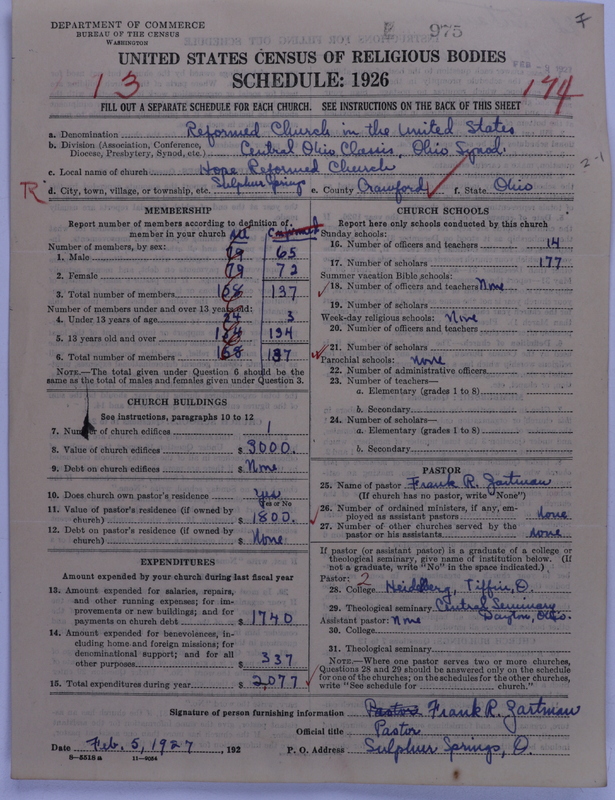 DEPARTMENT OF COMMERCE
BUREAU OF THE CENSUS
WASHINGTON
975
7
UNITED STATES CENSUS OF RELIGIOUS BODIES
SCHEDULE: 1926
13
174
FILL OUT A SEPARATE SCHEDULE FOR EACH CHURCH. SEE INSTRUCTIONS ON THE BACK OF THIS SHEET
a. Denomination Reformed Church in the United States
b. Division (Association, Conference, Diocese, Presbytery, Synod, etc.) Central Ohio Classis, Ohio Synod.
2-1
c. Local name of church Hope Reformed Church
R d. City, town, village, or township, etc. Sulphur Springs e. County Crawford f. State Ohio
MEMBERSHIP
Report number of members according to definition of member in your church All
Number of members, by sex:
1. Male 79 65
2. Female 79 72
3. Total number of members 158 137
Number of members under and over 13 years old:
4. Under 13 years of age 24 3
5. 13 years old and over 134 134
6. Total number of members 158 137
NOTE.—The total given under Question 6 should be the same as the total of males and females given under Question 3.
CHURCH BUILDINGS
See instructions, paragraphs 10 to 12
7. Number of church edifices 1
8. Value of church edifices $ 3000.
9. Debt on church edifices $ None
10. Does church own pastor's residence Yes
Yes or No
11. Value of pastor's residence (if owned by church) $ 1800.
12. Debt on pastor's residence (if owned by church) $ None
EXPENDITURES
Amount expended by your church during last fiscal year
13. Amount expended for salaries, repairs, and other running expenses; for improvements or new buildings; and for payments on church debt $ 1740
14. Amount expended for benevolences, including home and foreign missions; for denominational support; and for all other purposes $ 337
15. Total expenditures during year $ 2,077
CHURCH SCHOOLS
Report here only schools conducted by this church
Sunday schools:
16. Number of officers and teachers 14
17. Number of scholars 177
Summer vacation Bible schools:
18. Number of officers and teachers None
19. Number of scholars
Week-day religious schools: None
20. Number of officers and teachers
21. Number of scholars
Parochial schools: None
22. Number of administrative officers
23. Number of teachers—
a. Elementary (grades 1 to 8)
b. Secondary
24. Number of scholars—
a. Elementary (grades 1 to 8)
b. Secondary
PASTOR
25. Name of pastor Frank R. Zartman
(If church has no pastor, write "None")
26. Number of ordained ministers, if any, employed as assistant pastors None
27. Number of other churches served by the pastor or his assistants None
If pastor (or assistant pastor) is a graduate of a college or theological seminary, give name of institution below. (If not a graduate, write "No" in the space indicated.)
Pastor: 2
28. College Heidelberg, Tiffin, O.
29. Theological seminary Central Seminary Dayton, Ohio.
Assistant pastor: None
30. College
31. Theological seminary
NOTE.—Where one pastor serves two or more churches, Questions 28 and 29 should be answered only on the schedule for one of the churches; on the schedules for the other churches, write "See schedule for church."
Signature of person furnishing information Pastor Frank R. Zartman
Official title Pastor
Date Feb. 5, 1927, 192 P. O. Address Sulphur Springs, O.
8—5518a 11—9054